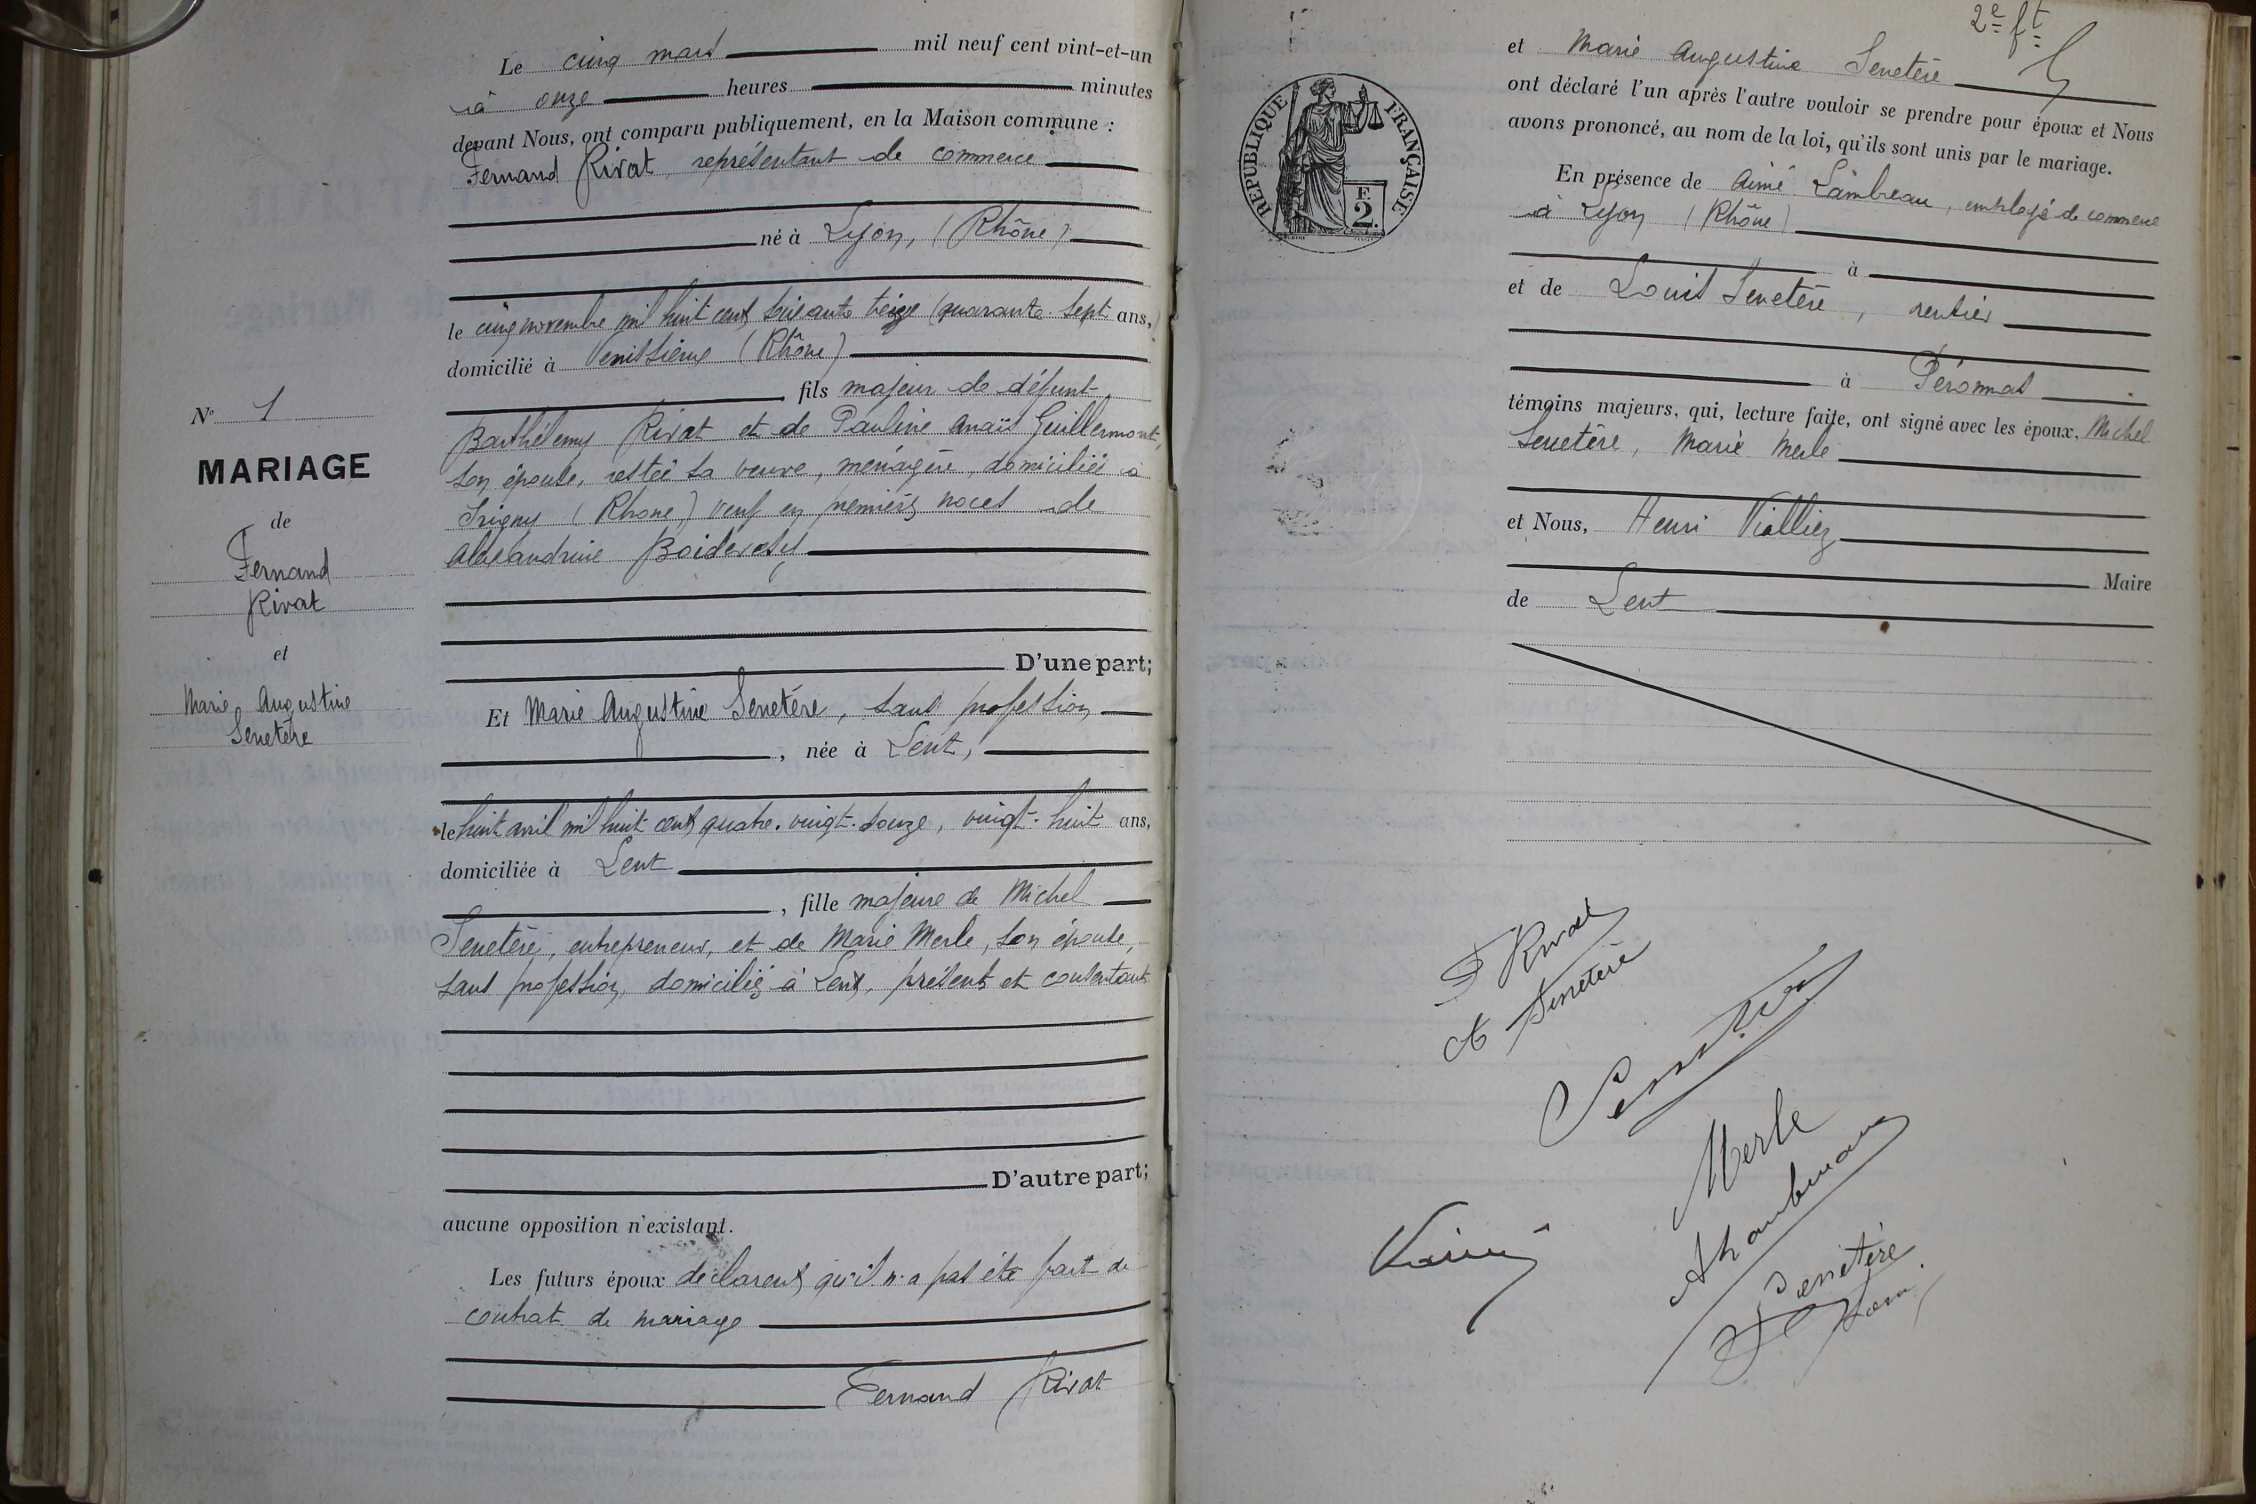 Le cinq mars mil neuf cent vint-et-un
à onze heures minutes
devant Nous, ont comparu publiquement, en la Maison commune :
Fernand Rivat, représentant de commerce
né à Lyon, (Rhône)
le cinq novembre mil huit cent soixante treize (quarante sept ans,
domicilié à Venissieux (Rhône)
fils majeur de défunt
Barthélemy Rivat et de Pauline Anaïs Guillermont,
son épouse, restée sa veuve, ménagère, domiciliée à
Irigny (Rhône) veuf en premières noces de
Alexandrine
D'une part;
N° 1
MARIAGE
de
Fernand
Rivat
et
Marie Augustine
Senetère
Et Marie Augustine Senetère, sans profession
, née à Lent,
le huit avril mil huit cent quatre-vingt-douze, vingt-huit ans,
domiciliée à Lent
, fille majeure de Michel
Senetère, entrepreneur, et de Marie Merle, son épouse,
sans profession, domiciliés à Lent, présents et consentants
D'autre part;
aucune opposition n'existant.
Les futurs époux déclarent qu'il n'a pas été fait de
contrat de mariage
Fernand Rivat
2e ft
et Marie Augustine Senetère
ont déclaré l'un après l'autre vouloir se prendre pour époux et Nous
avons prononcé, au nom de la loi, qu'ils sont unis par le mariage.
En présence de Aimé Lambeau, employé de commerce
à Lyon (Rhône)
à
et de Louis Senetère, rentier
à Péronnas
témoins majeurs, qui, lecture faite, ont signé avec les époux, Michel
Senetère, Marie Merle
et Nous, Henri Vialliez
Maire
de Lent
REPUBLIQUE FRANÇAISE
F.
2.
F Rivat
A Senetère
Merle
Senetère